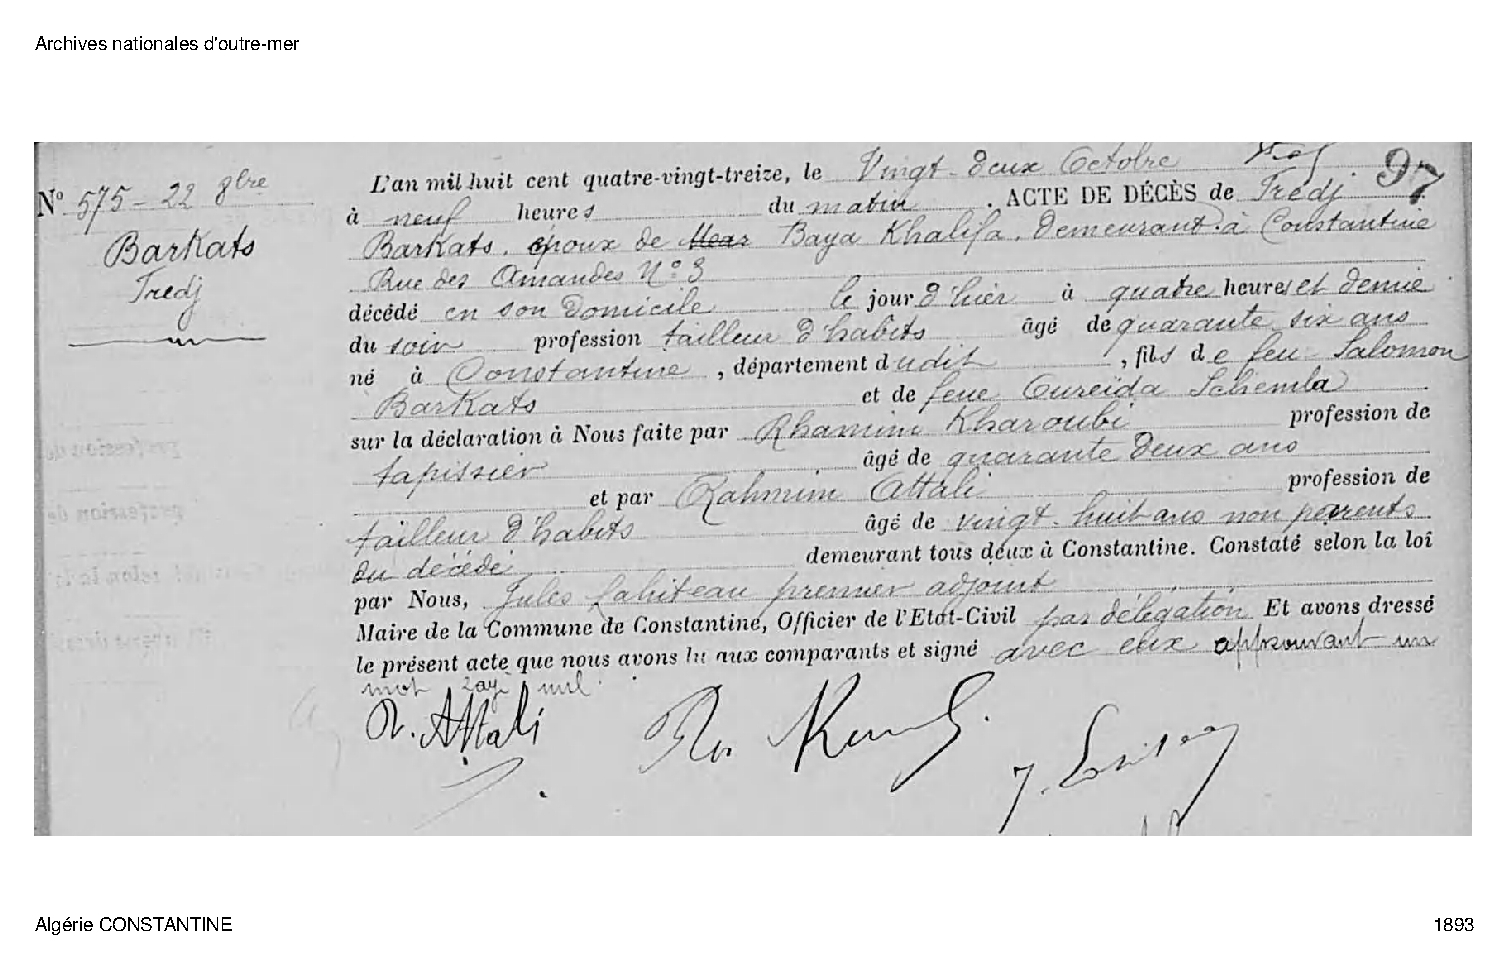 Archives nationales d'outre-mer
97
N° 575 - 22 8bre
Barkats
Fredj
L'an mil huit cent quatre-vingt-treize, le Vingt-deux Octobre
à neuf heures du matin. ACTE DE DÉCÈS de Fredj
Barkats. époux de Baya Khalifa. Demeurant à Constantine
Rue des Amandes N° 3
décédé en son domicile le jour d'hier à quatre heures et demie
du soir profession tailleur d'habits âgé de quarante six ans
né à Constantine, département dudit, fils de feu Salomon
Barkats et de feue Oureida Schemla
sur la déclaration à Nous faite par Rhamim Kharoubi profession de
tapissier âgé de quarante deux ans
et par Rahmim Attali profession de
tailleur d'habits âgé de vingt-huit ans non parents
du décédé demeurant tous deux à Constantine. Constaté selon la loi
par Nous, Jules Lahiteau premier adjoint
Maire de la Commune de Constantine, Officier de l'Etat-Civil par délégation Et avons dressé
le présent acte que nous avons lu aux comparants et signé avec eux approuvant un
mot rayé nul.
R. Attali
Algérie CONSTANTINE
1893